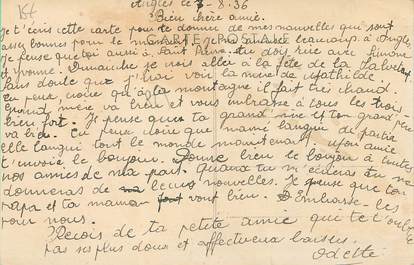 Anglès le 3-8.36
Bien chère amie.
Je t'écris cette carte pour te donner de mes nouvelles qui sont
assez bonnes pour le moment. Je m'amuse beaucoup à Anglès
Je pense que toi aussi à tu dois rire avec Simone
et Yvonne. Dimanche je vois aller à la fête de la Salvetat
sans doute que j'irai voir la mère de Mathilde.
Tu peux croire qu'à la montagne il fait très chaud.
Grand mère va bien et vous embrasse à tous les trois
bien fort. Je pense que ta grand mère et ton grand père
va bien. Tu peux croire que mamé languie de partir
elle langui tout le monde maintenant. Mon amie
t'envoie le bonjour. Donne bien le bonjour à toutes
nos amies de ma part. Quand tu m'écriras tu me
donneras de leurs nouvelles. Je pense que ton
papa et ta maman vont bien. Embrasse-les
pour nous.
Reçois de ta petite amie qui ne t'oublie
pas ses plus doux et affectueux baisers.
Odette